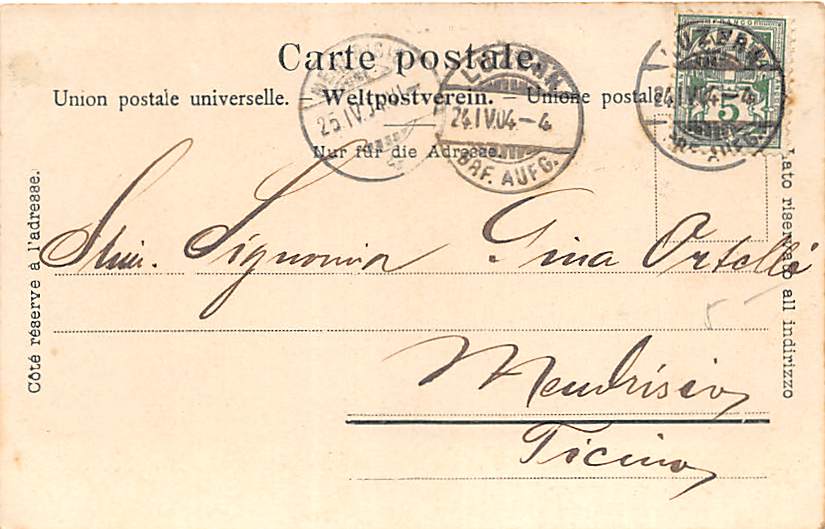 Carte postale.
Union postale universelle. – Weltpostverein. – Unione postale
Nur für die Adresse.
Côté réserve à l'adresse.
Lato riservato all indirizzo
FRANCO
5
LUZERN
24.IV.04-4
BRF. AUFG.
LUZERN
24.IV.04-4
BRF. AUFG.
MENDRISIO
25.IV.04
Signorina Gina Ortelli
Mendrisio
Ticino